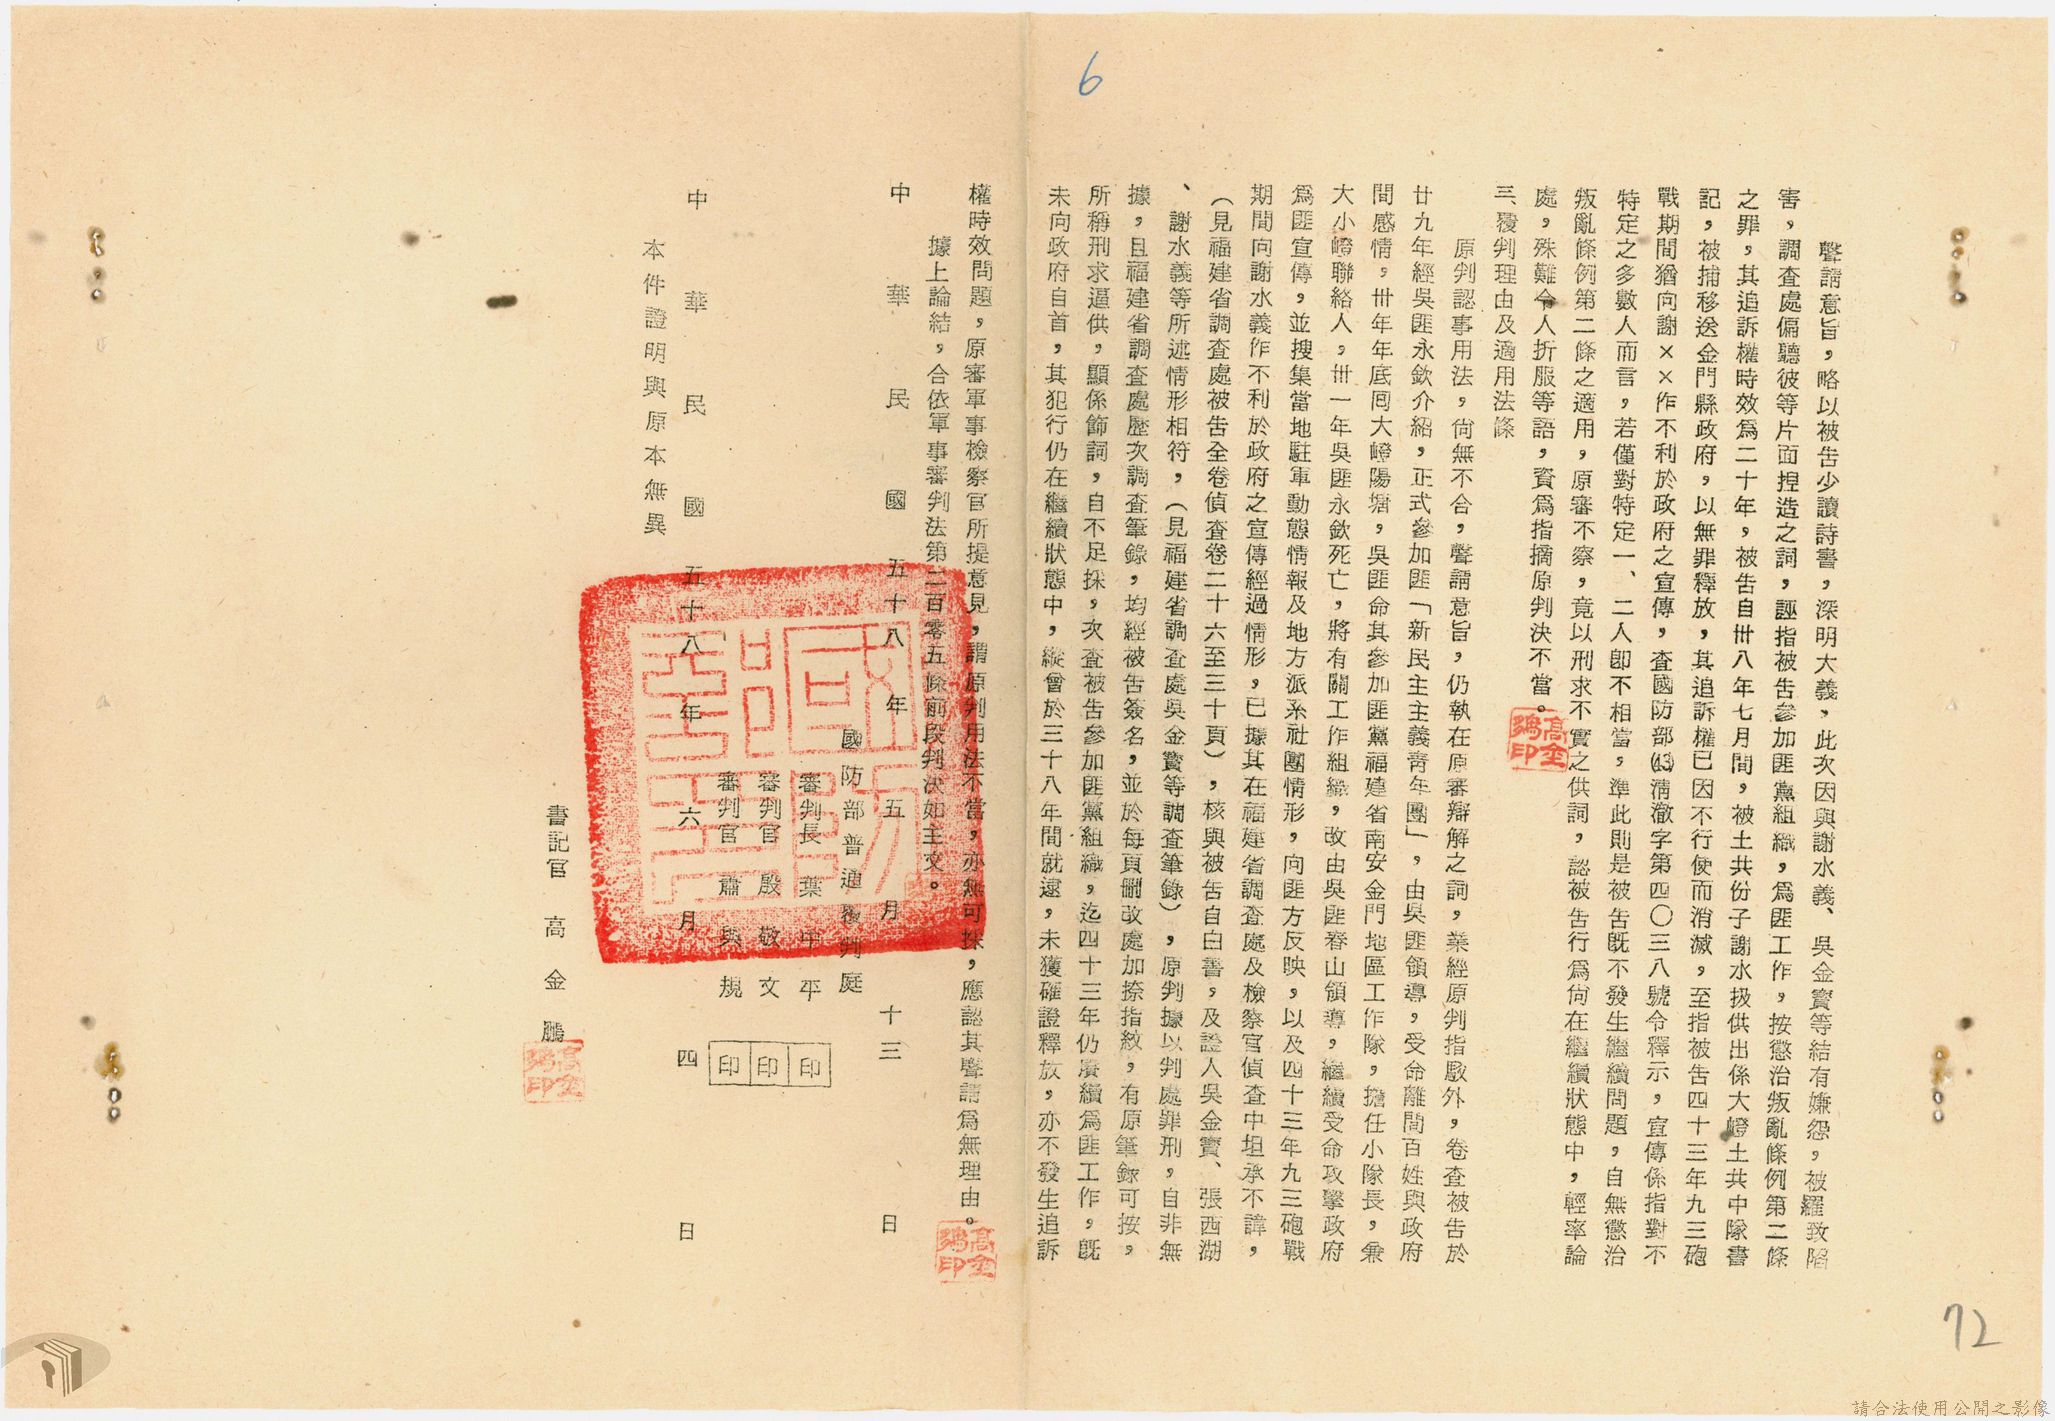 6
聲請意旨，略以被告少讀詩書，深明大義，此次因與謝水義、吳金寶等結有嫌怨，被羅致陷
害，調查處偏聽彼等片面捏造之詞，誣指被告參加匪黨組織，為匪工作，按懲治叛亂條例第二條
之罪，其追訴權時效為二十年，被告自卅八年七月間，被土共份子謝水扱供出係大嶝土共中隊書
記，被捕移送金門縣政府，以無罪釋放，其追訴權已因不行使而消滅，至指被告四十三年九三砲
戰期間猶向謝××作不利於政府之宣傳，查國防部(43)清澈字第四〇三八號令釋示，宣傳係指對不
特定之多數人而言，若僅對特定一、二人卽不相當，準此則是被告既不發生繼續問題，自無懲治
叛亂條例第二條之適用，原審不察，竟以刑求不實之供詞，認被告行為尙在繼續狀態中，輕率論
處，殊難令人折服等語，資為指摘原判決不當。
高金鵬印
三、覆判理由及適用法條
原判認事用法，尙無不合，聲請意旨，仍執在原審辯解之詞，業經原判指駁外，卷查被告於
廿九年經吳匪永欽介紹，正式參加匪「新民主主義靑年團」，由吳匪領導，受命離間百姓與政府
間感情，卅年年底囘大嶝陽塘，吳匪命其參加匪黨福建省南安金門地區工作隊，擔任小隊長，兼
大小嶝聯絡人，卅一年吳匪永欽死亡，將有關工作組織，改由吳匪春山領導，繼續受命攻擊政府
為匪宣傳，並搜集當地駐軍動態情報及地方派系社團情形，向匪方反映，以及四十三年九三砲戰
期間向謝水義作不利於政府之宣傳經過情形，已據其在福建省調查處及檢察官偵查中坦承不諱，
（見福建省調查處被告全卷偵查卷二十六至三十頁），核與被告自白書，及證人吳金寶、張西湖
、謝水義等所述情形相符，（見福建省調查處吳金寶等調查筆錄），原判據以判處罪刑，自非無
據，且福建省調查處歷次調查筆錄，均經被告簽名，並於每頁刪改處加捺指紋，有原筆錄可按，
所稱刑求逼供，顯係飾詞，自不足採，次查被告參加匪黨組織，迄四十三年仍賡續為匪工作，旣
未向政府自首，其犯行仍在繼續狀態中，縱曾於三十八年間就逮，未獲確證釋放，亦不發生追訴
權時效問題，原審軍事檢察官所提意見，謂原判用法不當，亦無可採，應認其聲請為無理由。
高金鵬印
據上論結，合依軍事審判法第二百零五條前段判決如主文。
中華民國五十八年五月十三日
國防部普通覆判庭
審判長 葉中平 印
審判官 殷敬文 印
審判官 蕭與規 印
中華民國五十八年六月四日
本件證明與原本無異
書記官 高金鵬
高金鵬印
72
請合法使用公開之影像